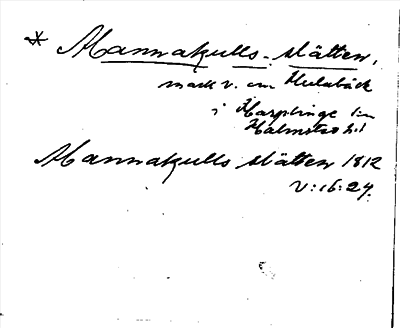 * Mannakulls-slätten,
mark v. om Hulabäck
i Harplinge sn
Halmstad hd
Mannakulls slätten 1812
V:16:24.